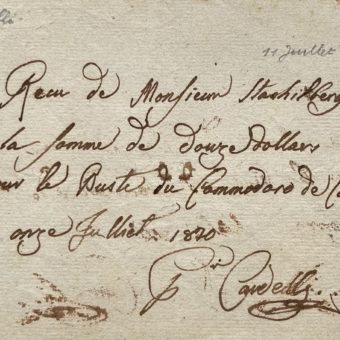 11 Juillet
Recu de Monsieur
la somme de douze dollars
our le Buste du Commodore de
onze Julliet 1820
Pr Cardelli